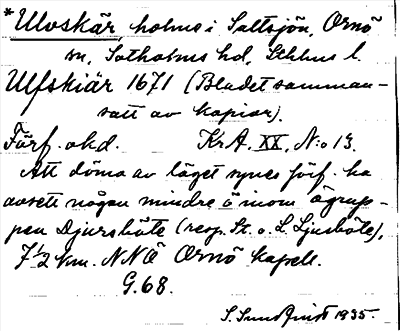 *Ulvskär, holme i Saltsjön, Ornö
sn, Sotholms hd, Sthlms l.
Ulfskiär 1671 (Bladet samman-
satt av kopior).
Förf. okd. KrA. XX, N:o 13.
Att döma av läget synes förf. ha
avsett någon mindre ö inom ögrup-
pen Djursböte (resp. St. o. L. Ljusböte),
7 1/2 km. NNÖ Ornö kapell.
G. 68.
S. Sundquist 1935.